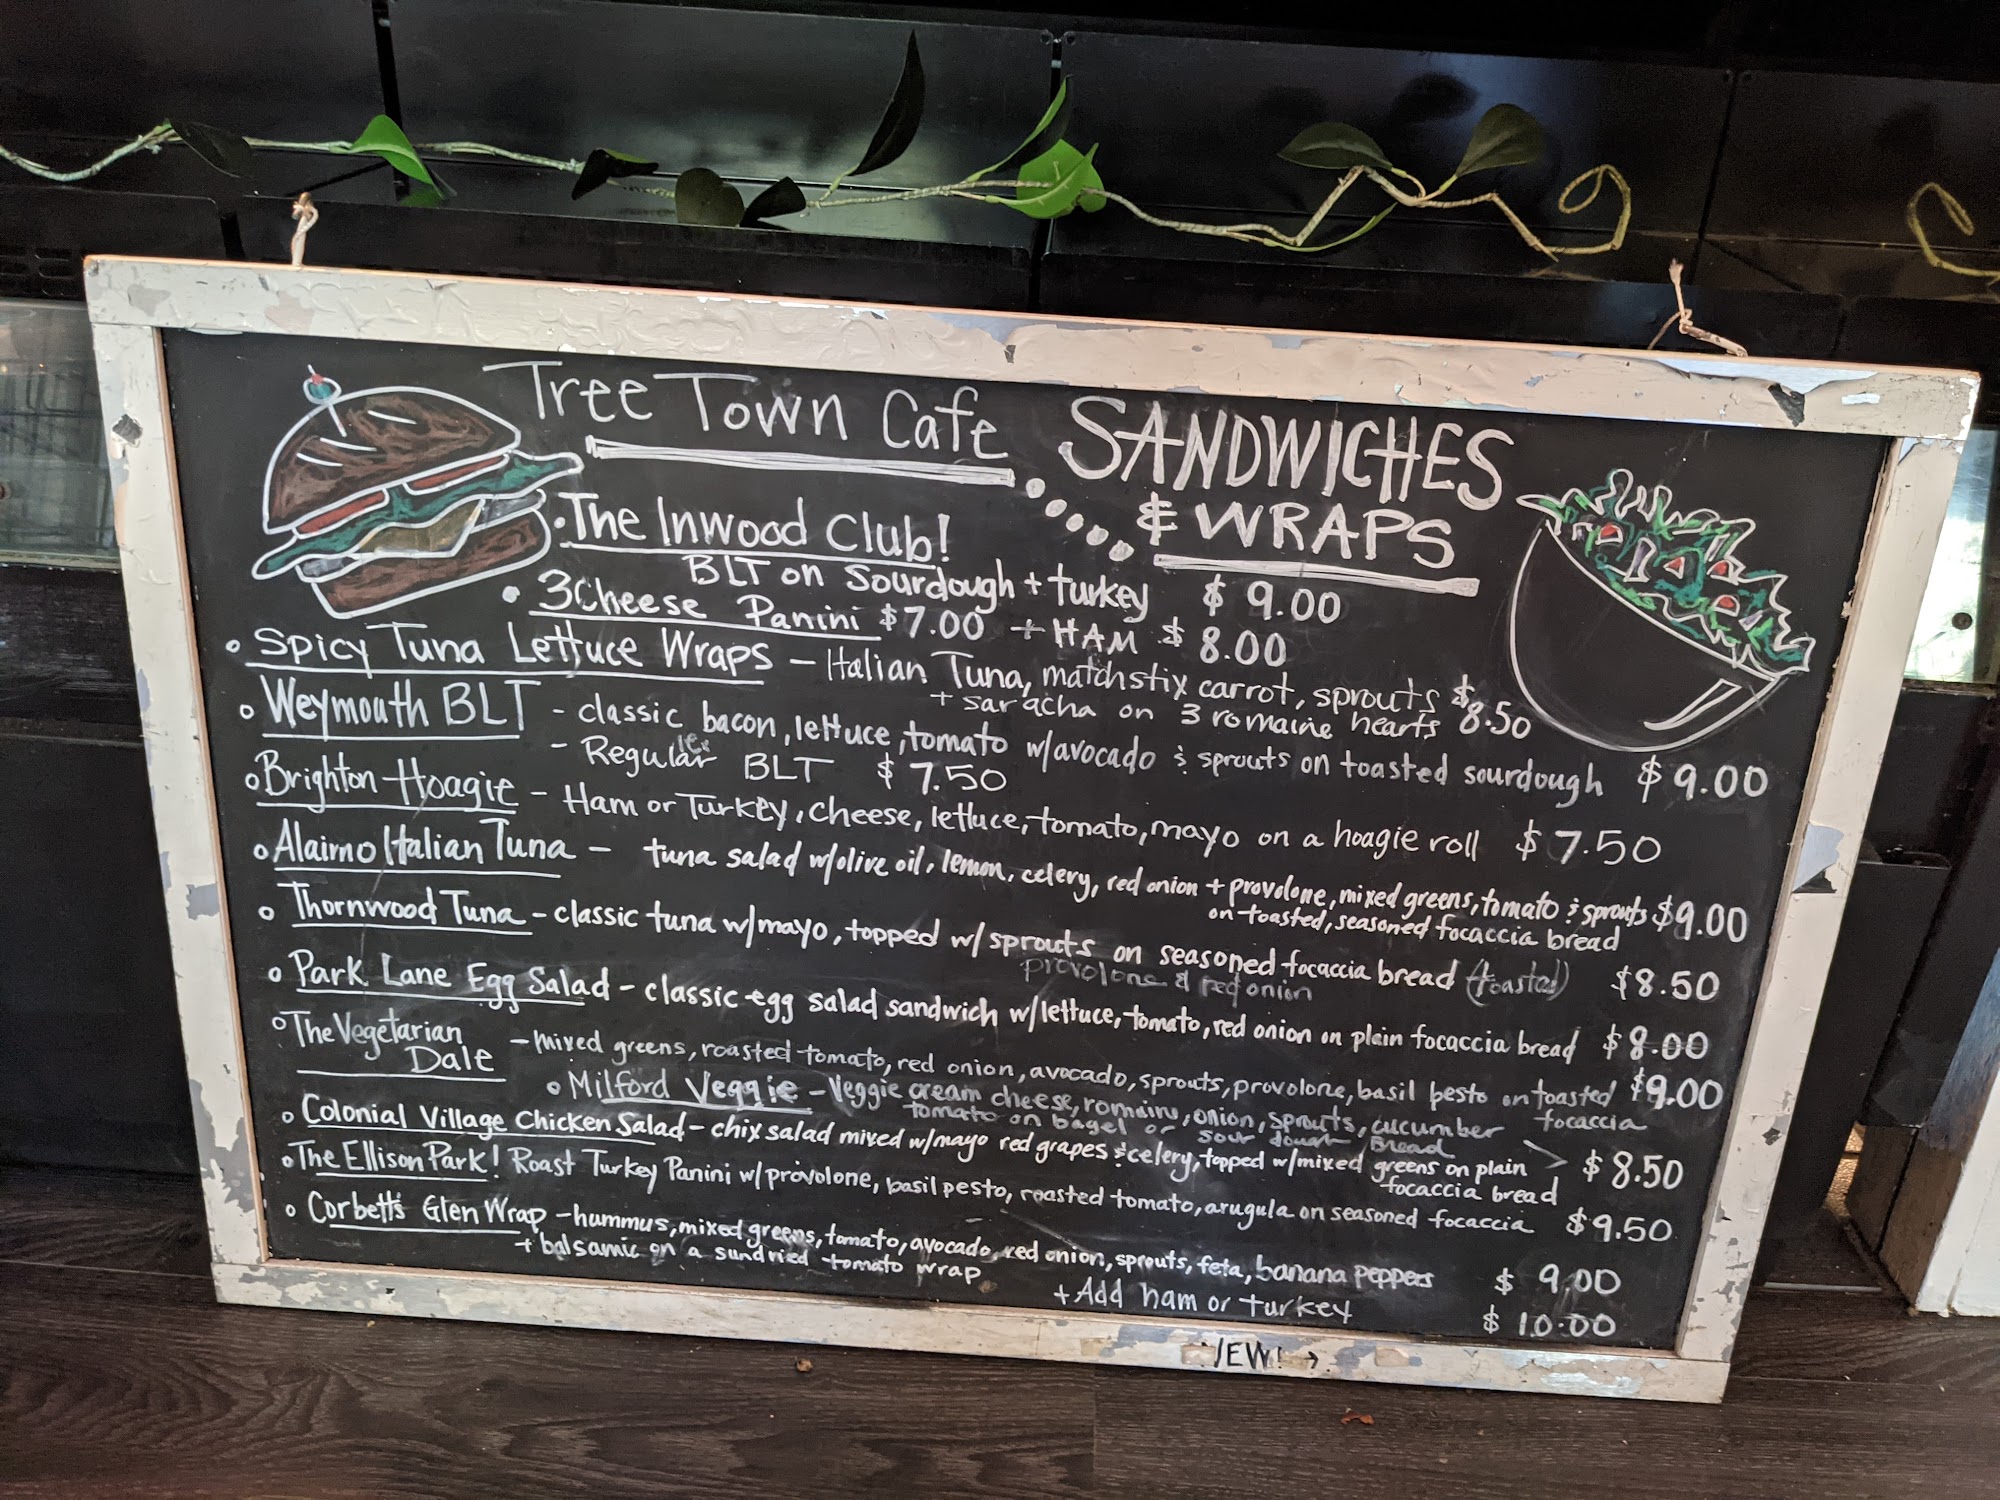 Tree Town Cafe SANDWICHES
& WRAPS
• The Inwood Club!
BLT on Sourdough + turkey $ 9.00
• 3Cheese Panini $7.00 + HAM $ 8.00
• Spicy Tuna Lettuce Wraps – Italian Tuna, matchstix carrot, sprouts $8.50
+ saracha on 3 romaine hearts
• Weymouth BLT - classic bacon, lettuce, tomato w/avocado & sprouts on toasted sourdough $ 9.00
- Regular BLT $ 7.50
• Brighton Hoagie - Ham or Turkey, cheese, lettuce, tomato, mayo on a hoagie roll $ 7.50
• Alaimo Italian Tuna – tuna salad w/olive oil, lemon, celery, red onion + provolone, mixed greens, tomato & sprouts $9.00
on toasted, seasoned focaccia bread
• Thornwood Tuna - classic tuna w/mayo, topped w/ sprouts on seasoned focaccia bread (toasted) $8.50
provolone & red onion
• Park Lane Egg Salad - classic egg salad sandwich w/lettuce, tomato, red onion on plain focaccia bread $8.00
• The Vegetarian
Dale - mixed greens, roasted tomato, red onion, avocado, sprouts, provolone, basil pesto on toasted $9.00
focaccia
• Milford Veggie - Veggie cream cheese, romaine, onion, sprouts, cucumber
tomato on bagel or sour dough Bread
• Colonial Village Chicken Salad - chix salad mixed w/mayo red grapes & celery, topped w/mixed greens on plain > $8.50
focaccia bread
• The Ellison Park! Roast Turkey Panini w/provolone, basil pesto, roasted tomato, arugula on seasoned focaccia $9.50
• Corbett's Glen Wrap - hummus, mixed greens, tomato, avocado, red onion, sprouts, feta, banana peppers $ 9.00
+ balsamic on a sundried tomato wrap
+ Add ham or turkey $ 10.00
NEW! →